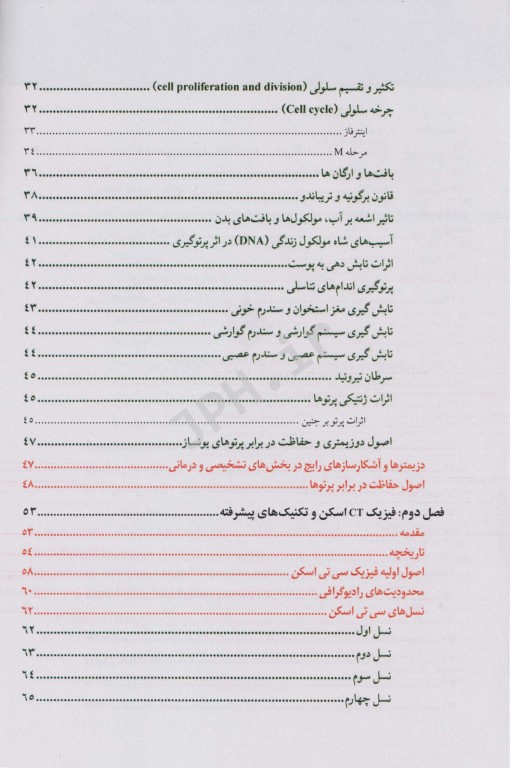 تکثیر و تقسیم سلولی (cell proliferation and division) ............................ ۳۲
چرخه سلولی (Cell cycle) ............................................................ ۳۲
اینترفاز ............................................................................ ۳۳
مرحله M ............................................................................ ۳۴
بافت‌ها و ارگان ها .................................................................... ۳۶
قانون برگونیه و تریباندو .............................................................. ۳۸
تاثیر اشعه بر آب، مولکول‌ها و بافت‌های بدن ............................................ ۳۹
آسیب‌های شاه مولکول زندگی (DNA) در اثر پرتوگیری .................................. ۴۱
اثرات تابش دهی به پوست ............................................................ ۴۲
پرتوگیری اندام‌های تناسلی ............................................................ ۴۲
تابش گیری مغز استخوان و سندرم خونی ................................................ ۴۳
تابش گیری سیستم گوارشی و سندرم گوارشی ............................................ ۴۴
تابش گیری سیستم عصبی و سندرم عصبی .............................................. ۴۴
سرطان تیروئید ...................................................................... ۴۵
اثرات ژنتیکی پرتوها .................................................................. ۴۵
اثرات پرتو بر جنین .................................................................. ۴۵
اصول دوزیمتری و حفاظت در برابر پرتوهای یونساز ...................................... ۴۷
دزیمترها و آشکارسازهای رایج در بخش‌های تشخیصی و درمانی .......................... ۴۷
اصول حفاظت در برابر پرتوها .......................................................... ۴۸
فصل دوم: فیزیک CT اسکن و تکنیک‌های پیشرفته ........................................ ۵۳
مقدمه .............................................................................. ۵۳
تاریخچه ............................................................................ ۵۴
اصول اولیه فیزیک سی تی اسکن ...................................................... ۵۸
محدودیت‌های رادیوگرافی .............................................................. ۶۰
نسل‌های سی تی اسکن ................................................................ ۶۲
نسل اول ............................................................................ ۶۲
نسل دوم ............................................................................ ۶۳
نسل سوم ............................................................................ ۶۴
نسل چهارم .......................................................................... ۶۵
JPH.ir